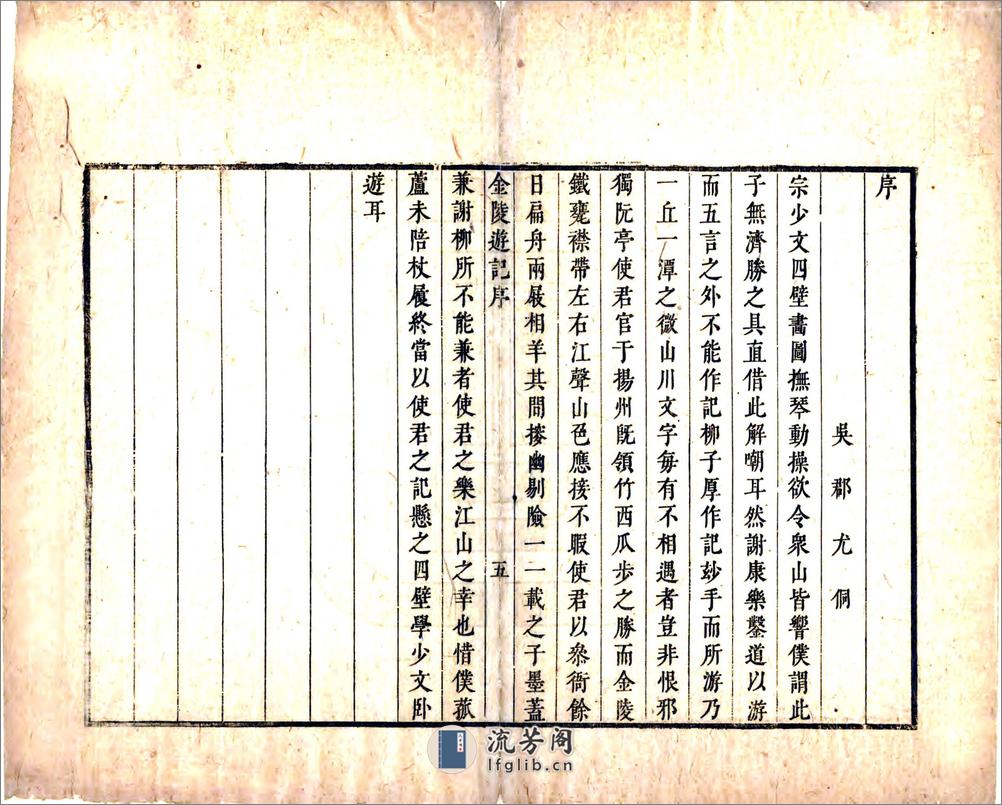 序
吳郡尤侗
宗少文四壁畵圖撫琴動操欲令衆山皆響僕謂此
子無濟勝之具直借此解嘲耳然謝康樂鑿道以游
而五言之外不能作記柳子厚作記妙手而所游乃
一丘一潭之微山川文字每有不相遇者豈非恨邪
獨阮亭使君官于揚州旣領竹西瓜步之勝而金陵
鐵甕襟帶左右江聲山色應接不暇使君以叅衙餘
日扁舟兩屐相羊其間搜幽剔險一一載之子墨蓋
金陵遊記序 五
兼謝柳所不能兼者使君之樂江山之幸也惜僕菰
蘆未陪杖屨終當以使君之記懸之四壁學少文卧
遊耳
流芳阁
lfglib.cn